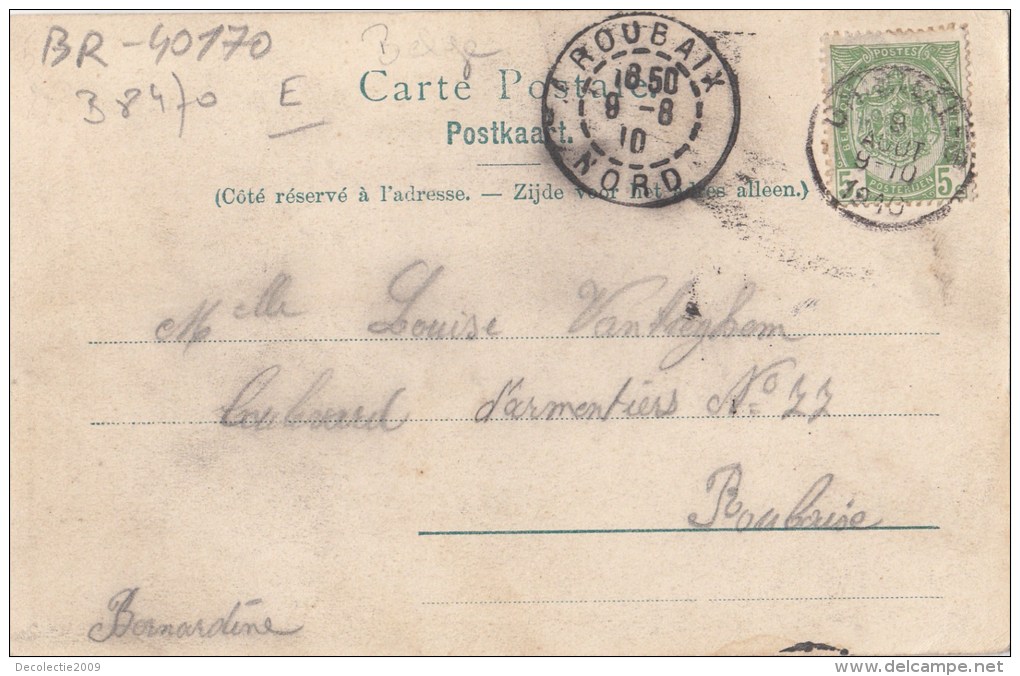 BR-40170
B 8470 E
Belge
Carte Postale.
Postkaart.
(Côté réservé à l'adresse. — Zijde voor het adres alleen.)
ROUBAIX
18 50
9 - 8
10
NORD
POSTES
8
AOUT
9-10
1910
5 POSTERIJEN 5
Melle Louise
d'armentiers No 77
Roubaise
Bernardine
Decolectie2009
www.delcampe.net